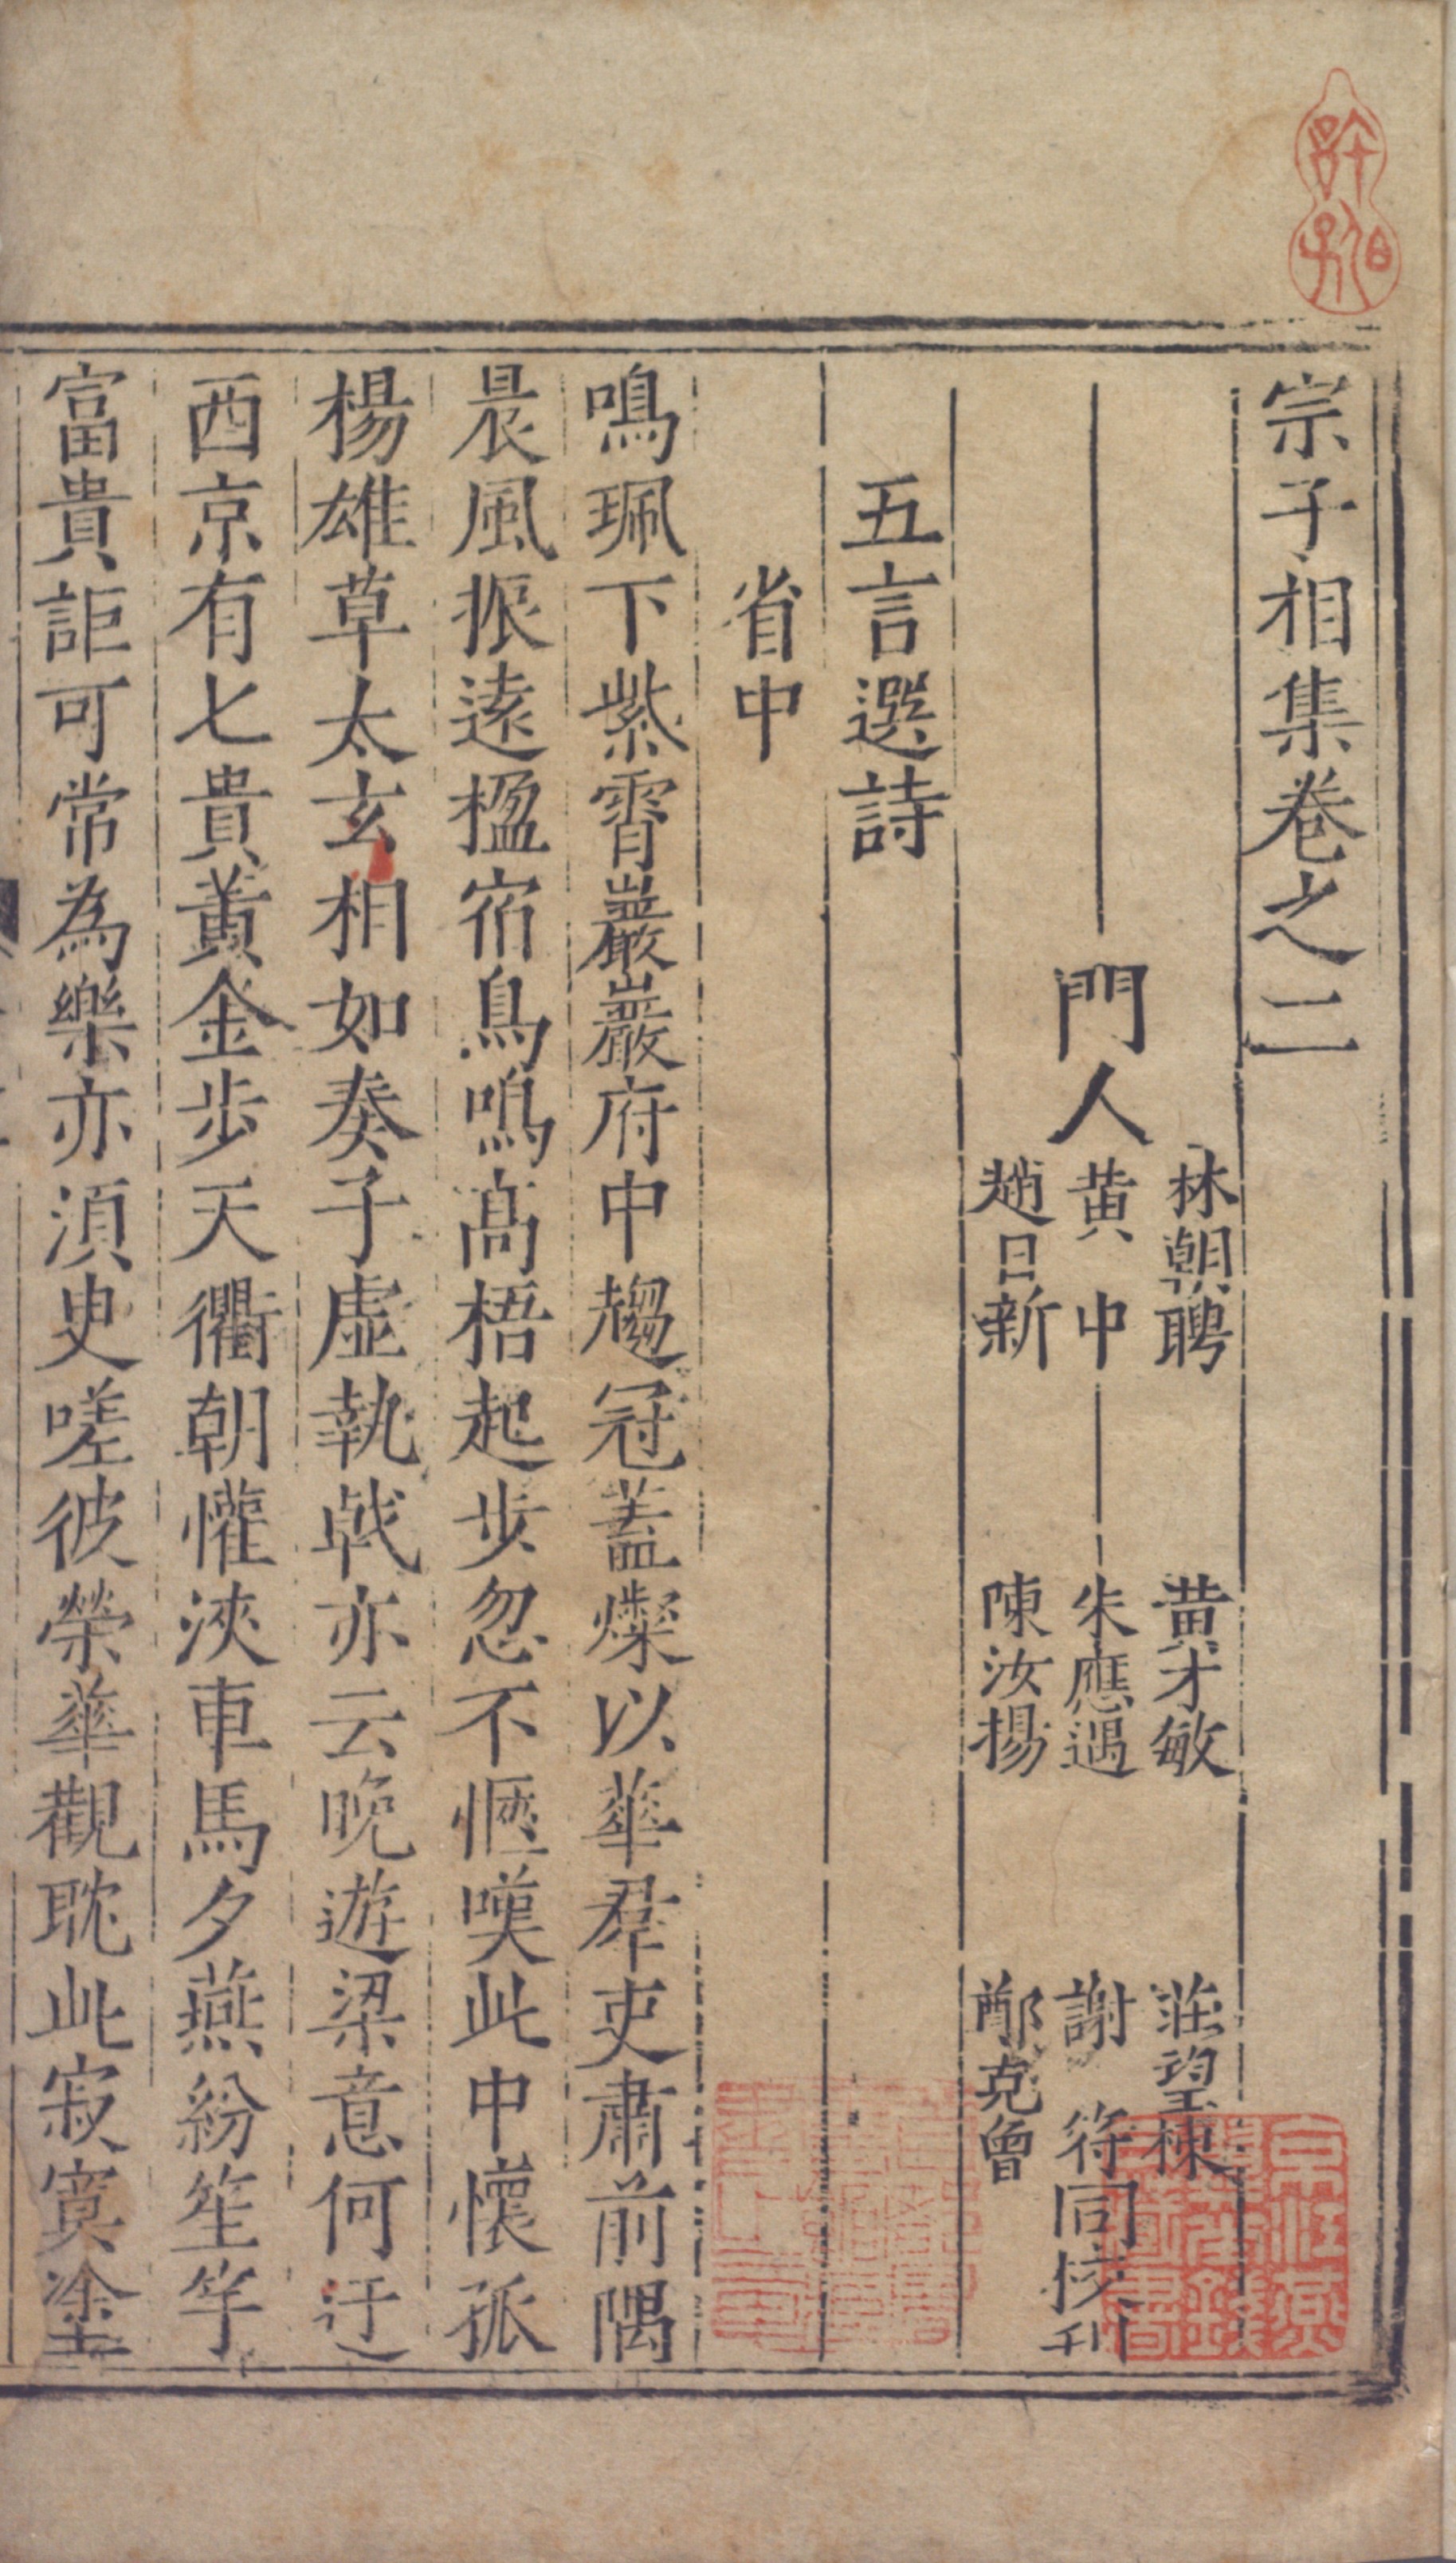 宗子相集卷之二
門人
林朝聘 黄才敏 莊望棟
黄中 朱應遇 謝符同校刊
趙日新 陳汝揚 鄭克曾
五言選詩
省中
鳴珮下紫霄巖巖府中趨冠蓋燦以華羣吏肅前隅
晨風振遠楹宿鳥鳴高梧起步忽不愜嘆此中懷孤
楊雄草太玄相如奏子虛執戟亦云晚遊梁意何迂
西京有七貴黃金步天衢朝懽浹車馬夕燕紛笙竽
富貴詎可常為樂亦須臾嗟彼榮華觀耽此寂寞塗